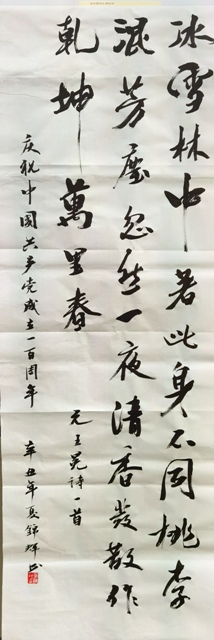 冰雪林中著此身不同桃李
混芳塵忽然一夜清香發散作
乾坤萬里春
元王冕詩一首
慶祝中國共产党成立一百周年
辛丑年夏錦輝书